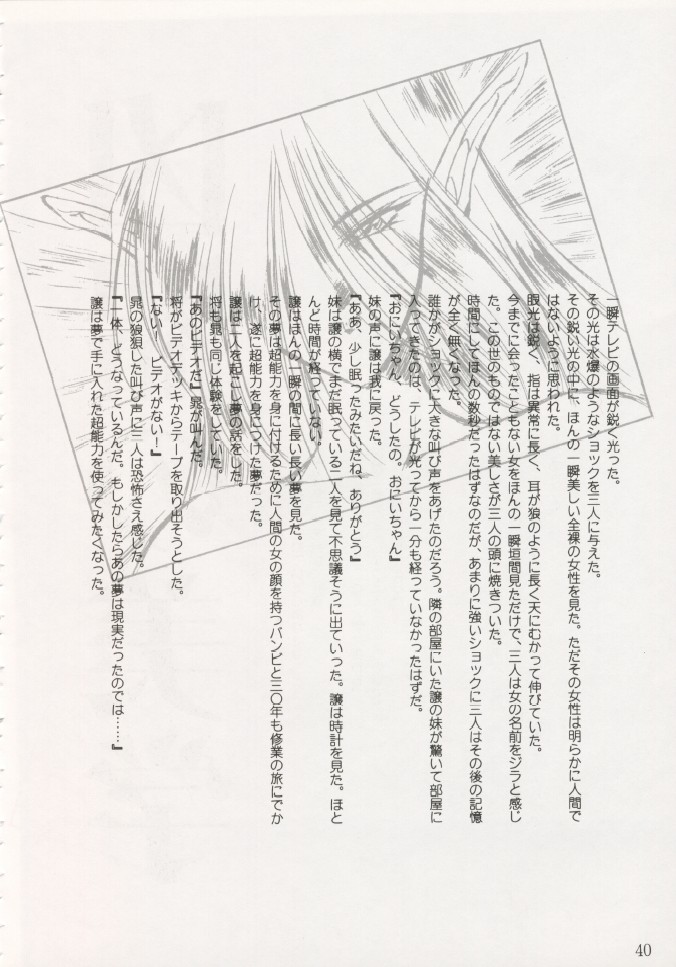 一瞬テレビの画面が鋭く光った。
その光は水爆のようなショックを三人に与えた。
その鋭い光の中に、ほんの一瞬美しい全裸の女性を見た。ただその女性は明らかに人間で
はないように思われた。
眼光は鋭く、指は異常に長く、耳が狼のように長く天にむかって伸びていた。
今までに会ったこともない女をほんの一瞬垣間見ただけで、三人は女の名前をジラと感じ
た。この世のものではない美しさが三人の頭に焼きついた。
時間にしてほんの数秒だったはずなのだが、あまりに強いショックに三人はその後の記憶
が全く無くなった。
誰かがショックに大きな叫び声をあげたのだろう。隣の部屋にいた譲の妹が驚いて部屋に
入ってきたのは、テレビが光ってから一分も経っていなかったはずだ。
『おにいちゃん、どうしたの。おにいちゃん』
妹の声に譲は我に戻った。
『ああ、少し眠ったみたいだね、ありがとう』
妹は譲の横でまだ眠っている二人を見て不思議そうに出ていった。譲は時計を見た。ほと
んど時間が経っていない。
譲はほんの一瞬の間に長い長い夢を見た。
その夢は超能力を身に付けるために人間の女の顔を持つバンビと三〇年も修業の旅にでか
け、遂に超能力を身につけた夢だった。
譲は二人を起こし夢の話をした。
将も晁も同じ体験をしていた。
『あのビデオだ』晁が叫んだ。
将がビデオデッキからテープを取り出そうとした。
『ない！　ビデオがない！』
晁の狼狽した叫び声に三人は恐怖さえ感じた。
『一体、どうなっているんだ。もしかしたらあの夢は現実だったのでは……』
譲は夢で手に入れた超能力を使ってみたくなった。
40